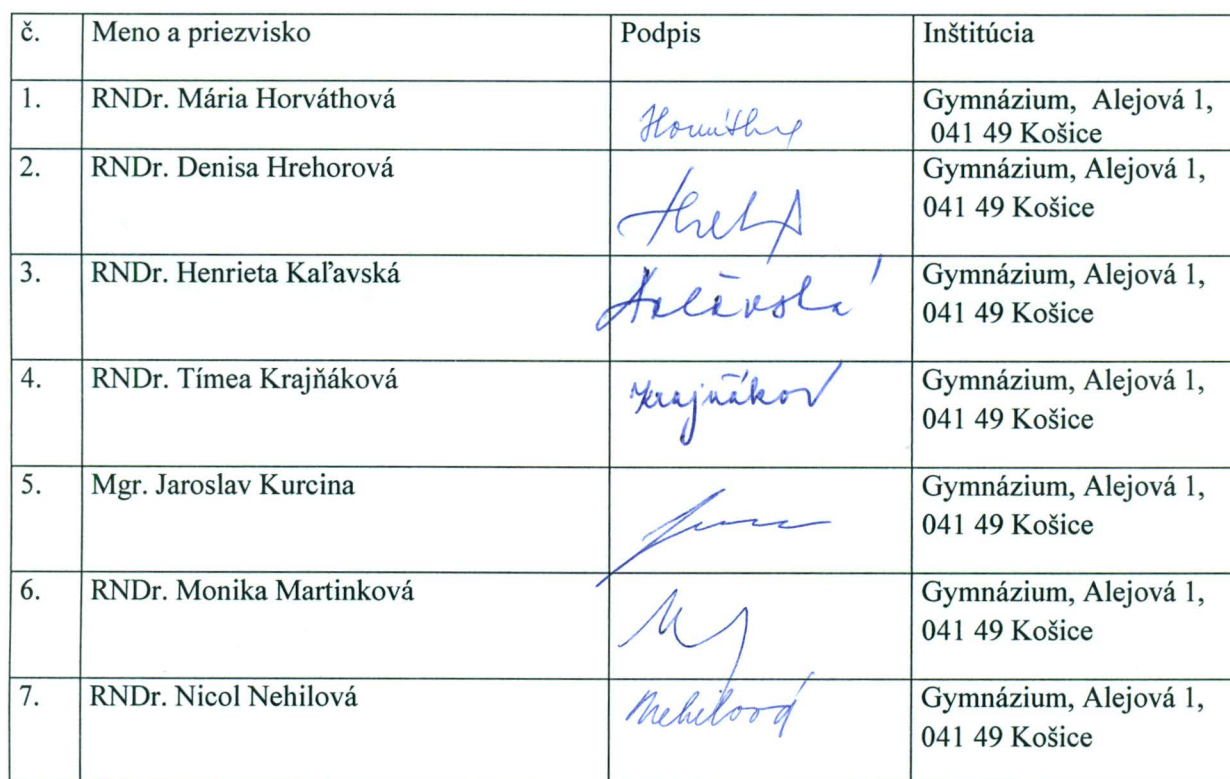 č. Meno a priezvisko Podpis Inštitúcia
1. RNDr. Mária Horváthová Gymnázium, Alejová 1,
041 49 Košice
2. RNDr. Denisa Hrehorová Gymnázium, Alejová 1,
041 49 Košice
3. RNDr. Henrieta Kaľavská Gymnázium, Alejová 1,
041 49 Košice
4. RNDr. Tímea Krajňáková Krajňákov Gymnázium, Alejová 1,
041 49 Košice
5. Mgr. Jaroslav Kurcina Gymnázium, Alejová 1,
041 49 Košice
6. RNDr. Monika Martinková Gymnázium, Alejová 1,
041 49 Košice
7. RNDr. Nicol Nehilová Nehilová Gymnázium, Alejová 1,
041 49 Košice